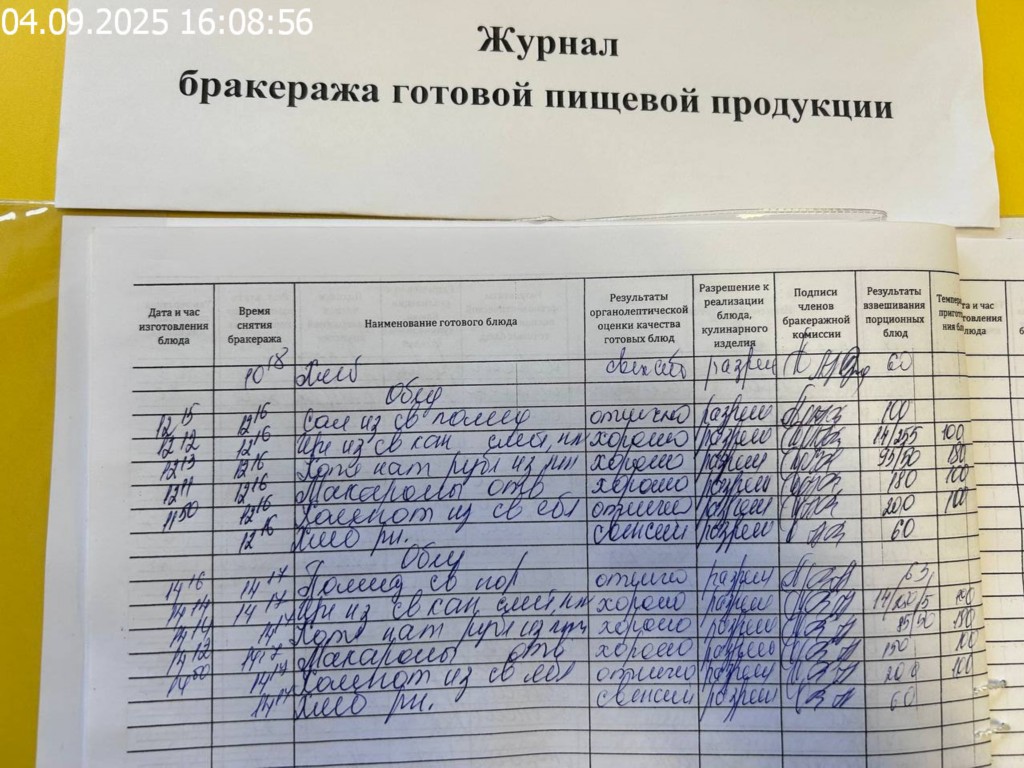 04.09.2025 16:08:56
Журнал
бракеража готовой пищевой продукции
Дата и час изготовления блюда
Время снятия бракеража
Наименование готового блюда
Результаты органолептической оценки качества готовых блюд
Разрешение к реализации блюда, кулинарного изделия
Подписи членов бракеражной комиссии
Результаты взвешивания порционных блюд
Темпера
приго
ния бл
та и час
товления
люда
10 18 Хлеб разреш 60
Обед
12 15 12 16 Сал из св помид отлично разреш 100
12 12 12 16 из св кап, смет, хорошо разреш 100
12 13 12 16 Котл нат руб из хорошо разреш 180
12 11 12 16 Макароны отв хорошо разреш 180 100
11 50 12 16 Компот из св ябл отлично разреш 200 100
12 16 Хлеб рж. свежий разреш 60
Обед
14 16 14 17 Помид св пор отлично разреш 63
14 14 14 17 из св кап, смет, хорошо разреш 100
14 14 14 17 Котл нат руб из хорошо разреш 180
14 12 14 17 Макароны отв хорошо разреш 150 100
14 17 Компот из св ябл отлично разреш 200 100
14 17 Хлеб рж. свежий разреш 60